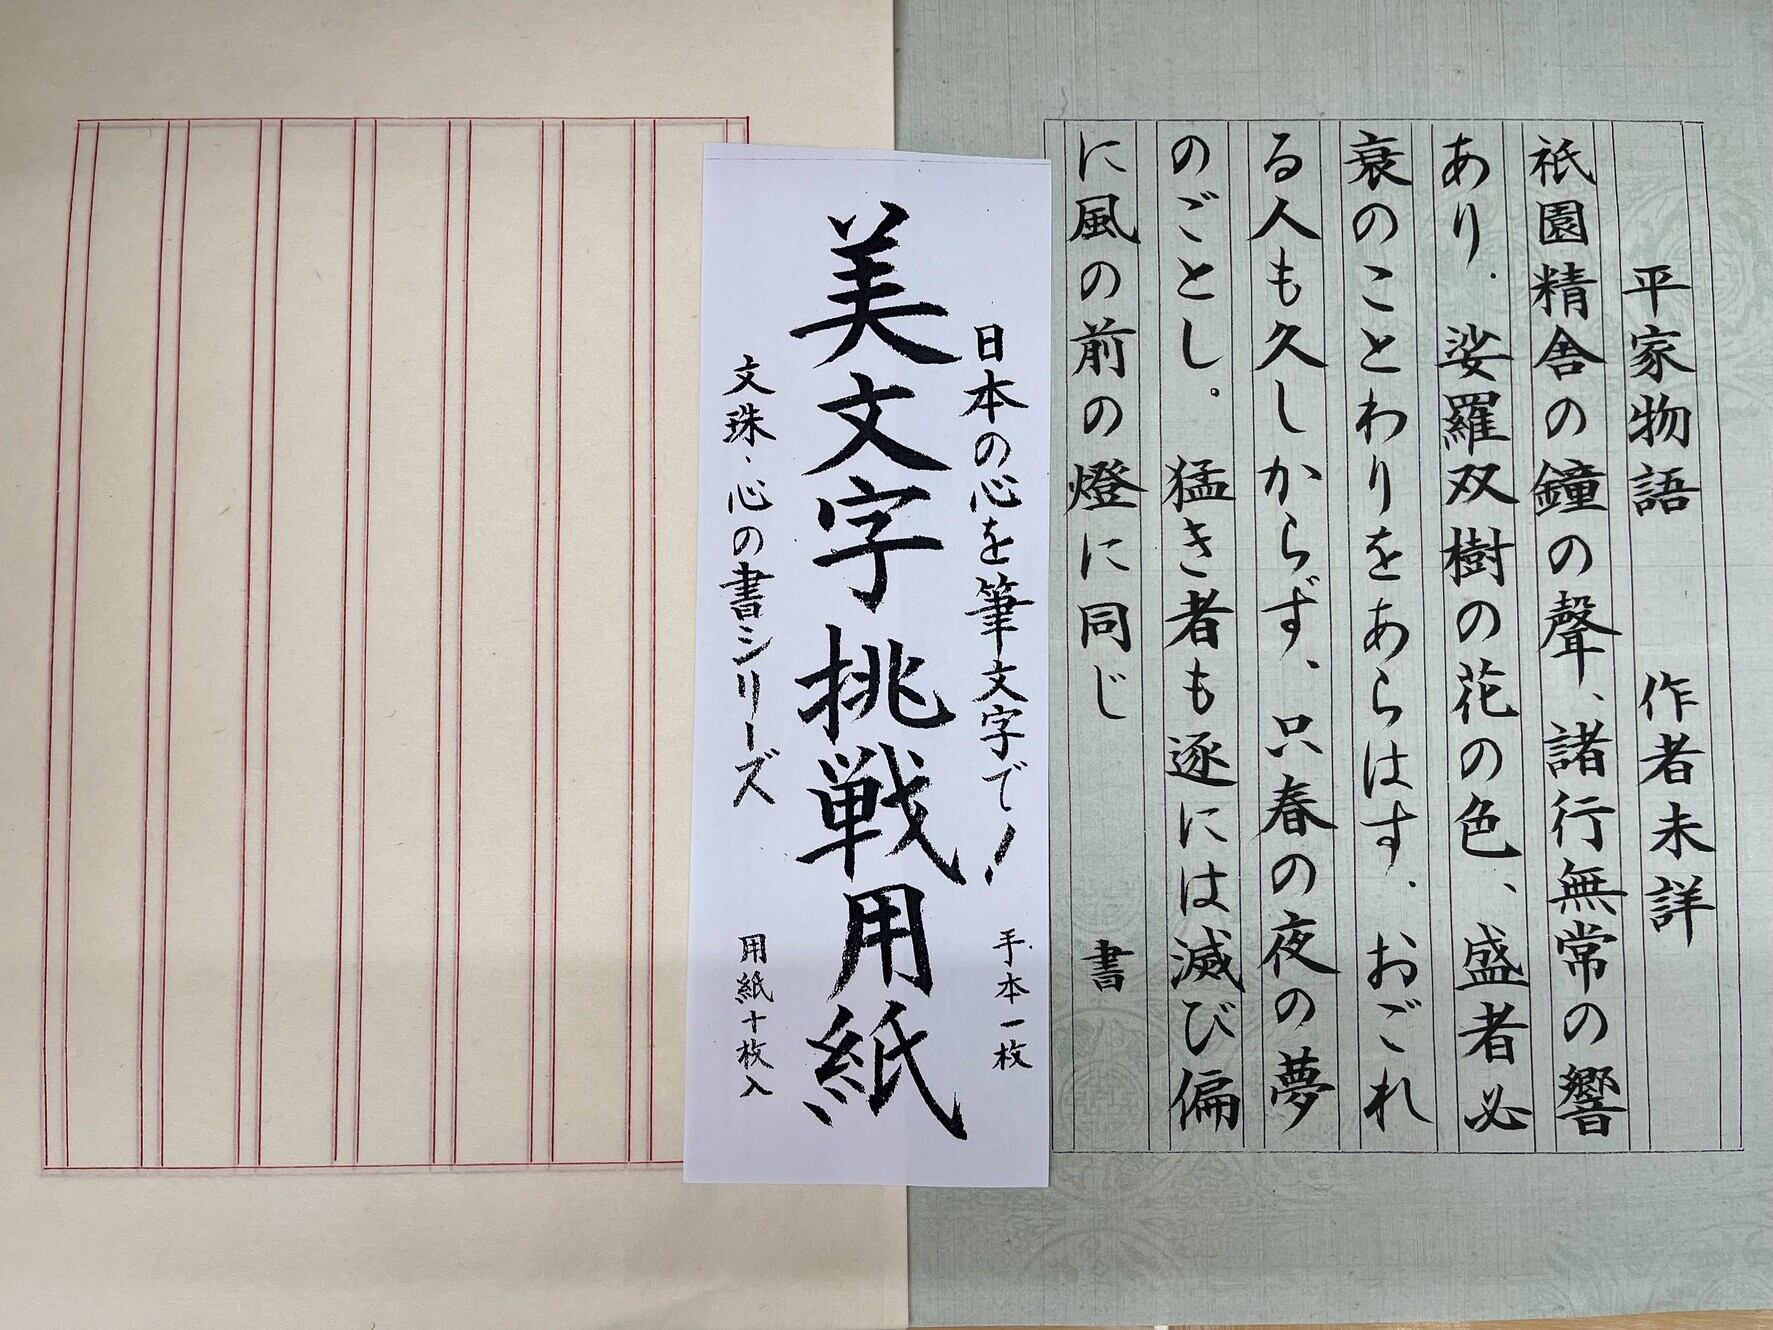 平家物語　作者未詳
祇園精舎の鐘の聲、諸行無常の響
あり。娑羅双樹の花の色、盛者必
衰のことわりをあらはす。おごれ
る人も久しからず、只春の夜の夢
のごとし。猛き者も逐には滅び偏
に風の前の燈に同じ　書
日本の心を筆文字で！　手本一枚
美文字挑戦用紙
文珠・心の書シリーズ　用紙十枚入